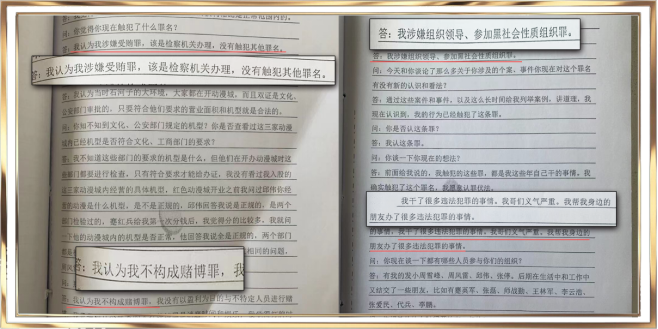 问:你觉得你现在触犯了什么罪名?
答:我认为我涉嫌受贿罪,该是检察机关办理,没有触犯其他罪名。
答:我认为当时石河子的大环境,大家都在开动漫城,而且双证是文化、
公安部门审批的,只要符合他们要求的营业面积和机型就是合法的。
问:你知不知到文化、公安部门规定的机型?你是否查看过这三家动漫
城的已经机型是否符合文化、工商部门的要求?
答:我不知道这些部门的要求的机型是什么,但他们在开办动漫城时这
些部门都要进行检查,只有符合要求才能给办证。我没有看过我入股的
这三家动漫城内经营的具体机型,红色动漫开业之前我问过邱伟你经
营的动漫是什么机型,是不是正规的,邱伟回答我说是正规的,是两个
部门检验过的,
一下他的动漫城内的机型是否正常,他回答我说全是正规的,两个部门
相同的问题,
答:我认为我不构成赌博罪,我
答:我认为我不构成赌博罪,我没有以盈利为目的与不特定人员进行赌
答:我涉嫌组织领导、参加黑社会性质组织罪。
答:我涉嫌组织领导、参加黑社会性质组织罪。
问:今天和你谈论了那么多关于你涉及的个案,事件你现在对这个罪名
有没有新的认识和看法?
答:通过这些案件和事件,以及这么长时间给我列举案例,讲道理,我
现在认识到,我的行为已经触犯了这条罪。
问:你是否认这条罪?
答:我认这条罪。
问:你谈一下你现在的想法?
答:前面给我说的,我触犯的这些罪,都是我这些年自己干的事情。我
确实触犯了这个罪名,我愿意认罪伏法。
我干了很多违法犯罪的事情。我哥们义气严重,我帮我身边的
朋友办了很多违法犯罪的事情。
的事情,我干了很多违法犯罪的事情。我哥们义气严重,我帮我身边的
朋友办了很多违法犯罪的事情。
问:你现在谈一下都有哪些人员参与你们的组织?
答:有我的发小周雪峰、周凤雷、邱伟、张停。后期在生活中和工作中
又结交了一些朋友,比如有蹇英军、张磊、师战勤、王林军、李云浩、
张爱民、代兵、李鹏。